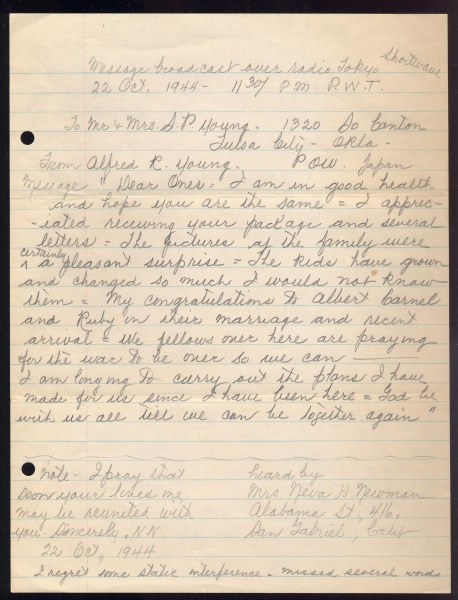 Shortwave
Message broadcast over radio Tokyo
22 Oct, 1944 - 11 30/ P.M. P.W.T.
To Mr & Mrs. S P Young. 1320 So Canton
Tulsa City - Okla -
From Alfred R. Young. P O W. Japan
Message " Dear Ones = I am in good health
and hope you are the same = I apprec-
-iated receiving your package and several
letters = The pictures of the family were
certainly
^ a pleasant surprise = The kids have grown
and changed so much I would not know
them = My congratulations to Albert Carnel
and Ruby on their marriage and recent
arrival = We fellows over here are praying
for the war to be over so we can -
I am longing to carry out the plans I have
made for us since I have been here = God be
with us all till we can be together again "
Note - I pray that
soon your loved one
may be reunited with
you. Sincerely, N.N.
22 Oct, 1944
heard by
Mrs Neva B Newman
Alabama St., 416,
San Gabriel, Calif
I regret some static interference - missed several words